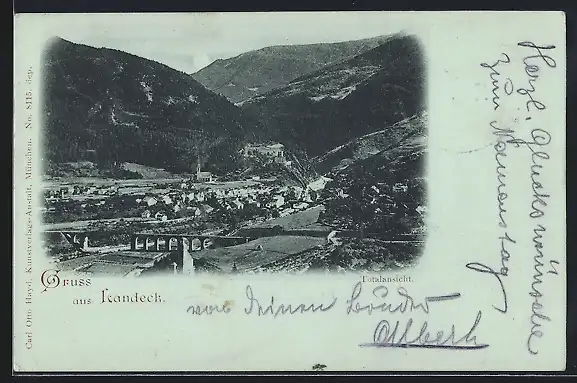 Carl Otto Hayd, Kunstverlags-Anstalt, München. No. 8115. dep.
Gruss
aus Landeck.
Totalansicht.
Herzl. Glückswünsche
zum Namenstag
von Deinen
Albert